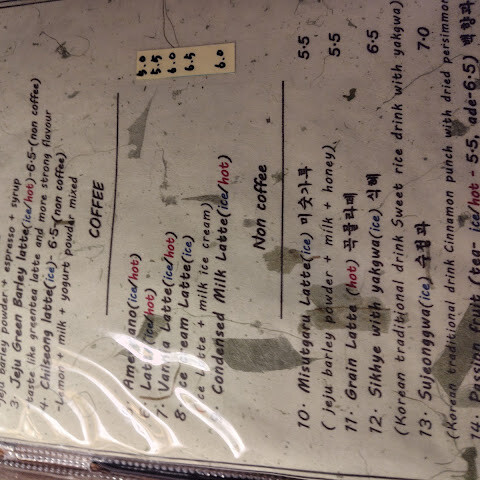 jeju barley powder + espresso + syrup
3. Jeju Green Barley latte(ice/hot)-6.5-(non coffee)
taste like greentea latte and more strong flavour
4. Chilseong latte(ice)- 6.5-(non coffee)
-Lemon + milk + yogurt powder mixed
COFFEE
Americano(ice/hot) 5.0
6. Latte(ice/hot) 5.5
7. Vanilla Latte(ice/hot) 6.0
8. Ice cream Latte(ice) 6.5
(ice latte + milk ice cream)
Condensed Milk Latte(ice/hot) 6.0
Non coffee
10. Misutgaru Latte(ice) 미숫가루 5.5
( jeju barley powder + milk + honey)
11. Grain Latte (hot) 곡물라떼 5.5
12. Sikhye with yakgwa(ice) 식혜 6.5
(Korean traditional drink Sweet rice drink with yakgwa)
13. Sujeonggwa(ice) 수정과 7.0
(Korean traditional drink Cinnamon punch with dried persimmon
14. Passion fruit (tea- ice/hot - 5.5, ade-6.5) 백향과